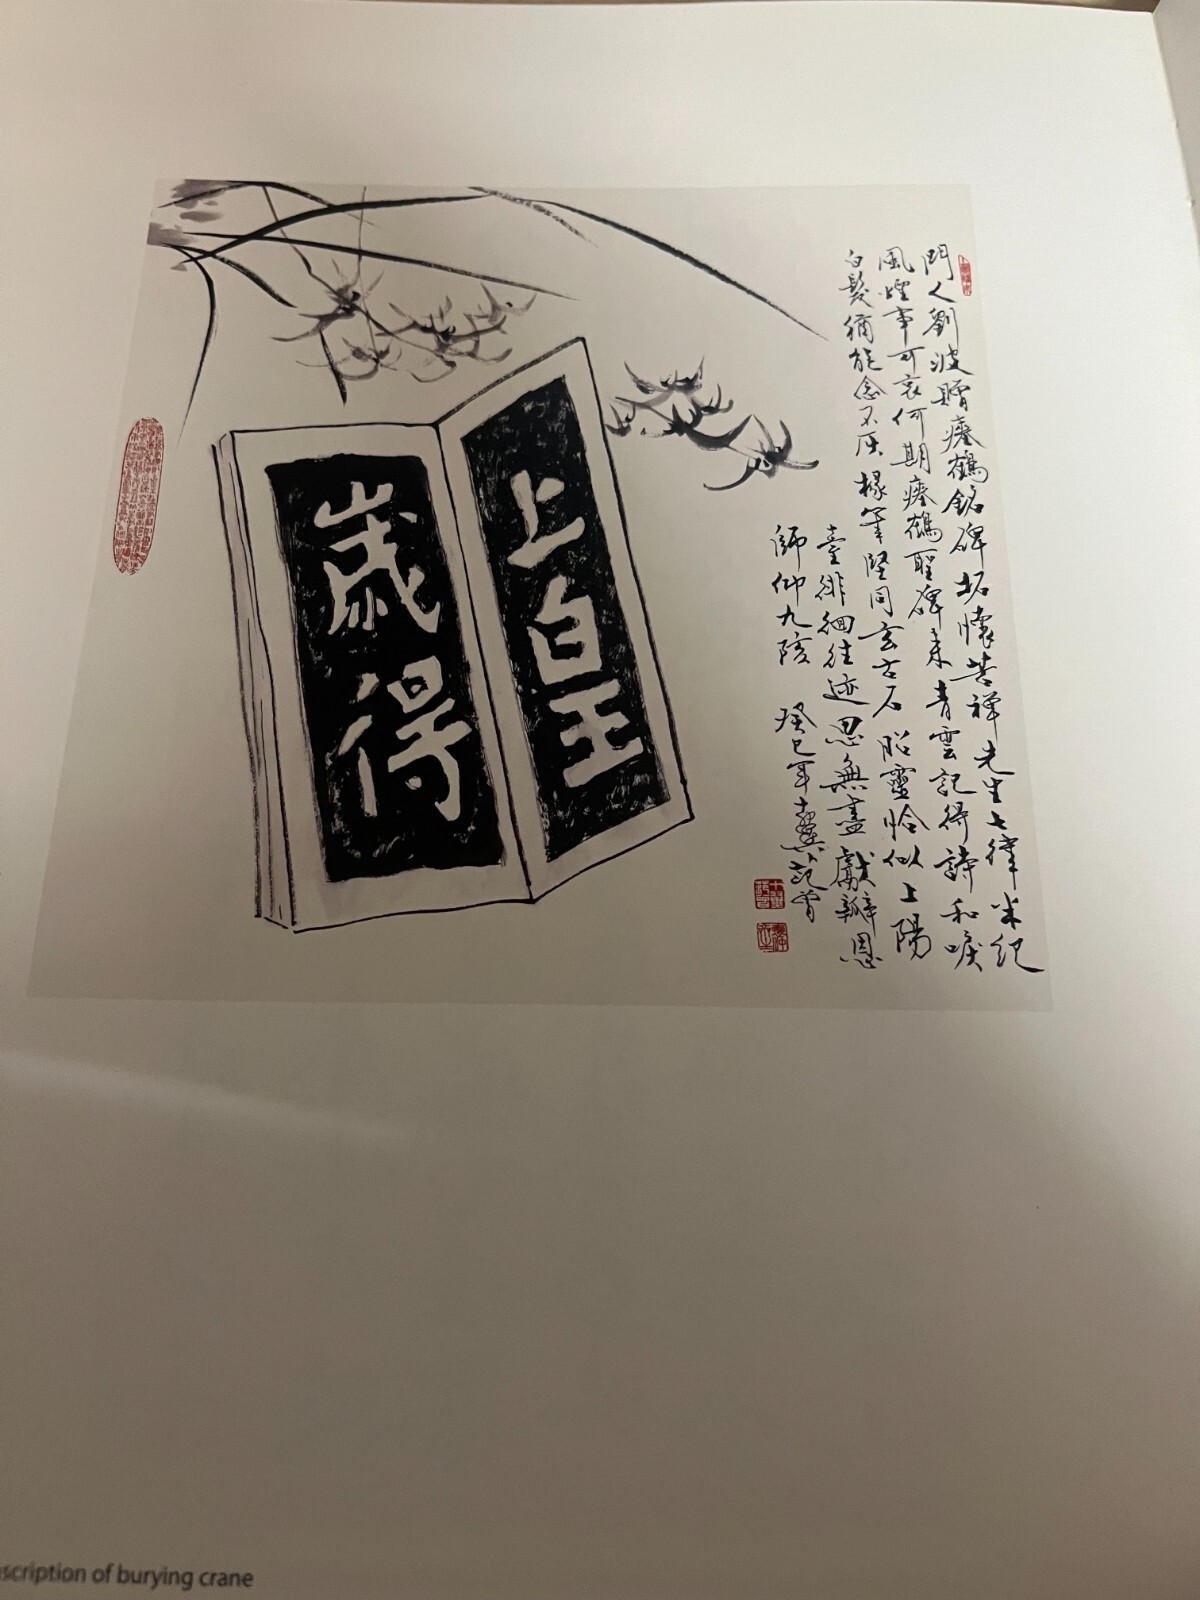 門人劉波贈瘞鶴銘碑拓懷苦禪先生七律半紀
風煙事可哀何期瘞鶴聖碑來青雲記得詩和唳
白髮猶能念不灰椽筆堅同玄古石胎靈恰似上陽
臺徘徊往迹思無盡獻瓣恩
師仰九陔 癸巳年十翼范曾
上皇
歲得
scription of burying crane